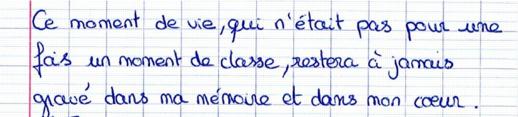 Ce moment de vie, qui n'était pas pour une
fois un moment de classe, restera à jamais
gravé dans ma mémoire et dans mon coeur.